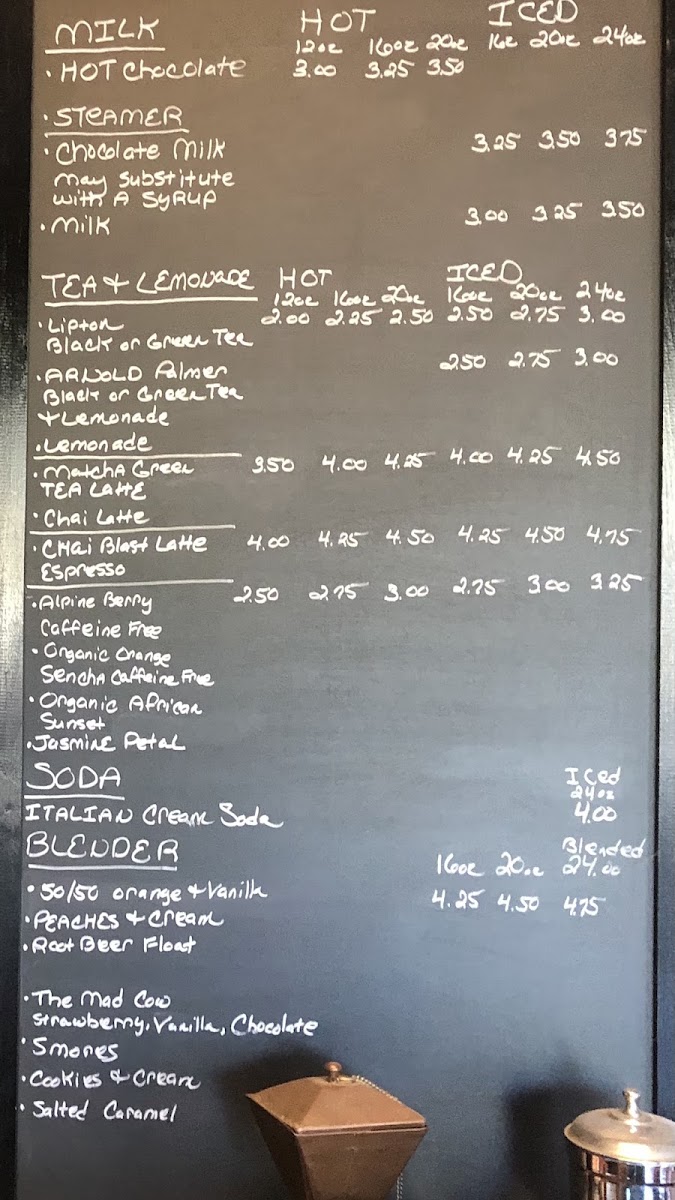 MILK HOT ICED
12oz 16oz 20oz 16z 20oz 24oz
· HOT Chocolate 3.00 3.25 3.50
· STEAMER
· Chocolate Milk 3.25 3.50 3.75
may substitute
with A SYRUP
· Milk 3.00 3.25 3.50
TEA & LEMONADE HOT ICED
12oz 16oz 20oz 16oz 20oz 24oz
· Lipton 2.00 2.25 2.50 2.50 2.75 3.00
Black or Green Tea
· ARNOLD Palmer 2.50 2.75 3.00
Black or Green Tea
& Lemonade
· Lemonade
· Matcha Green 3.50 4.00 4.25 4.00 4.25 4.50
TEA LATTE
· Chai Latte
· CHai Blast Latte 4.00 4.25 4.50 4.25 4.50 4.75
Espresso
· Alpine Berry 2.50 2.75 3.00 2.75 3.00 3.25
Caffeine Free
· Organic Orange
Sencha Caffeine Free
· Organic African
Sunset
· Jasmine Petal
SODA Iced
24oz
ITALIAN Cream Soda 4.00
BLENDER Blended
16oz 20oz 24.00
· 50/50 orange & Vanilla 4.25 4.50 4.75
· PEACHES & Cream
· Root Beer Float
· The Mad Cow
Strawberry, Vanilla, Chocolate
· Smores
· Cookies & Cream
· Salted Caramel